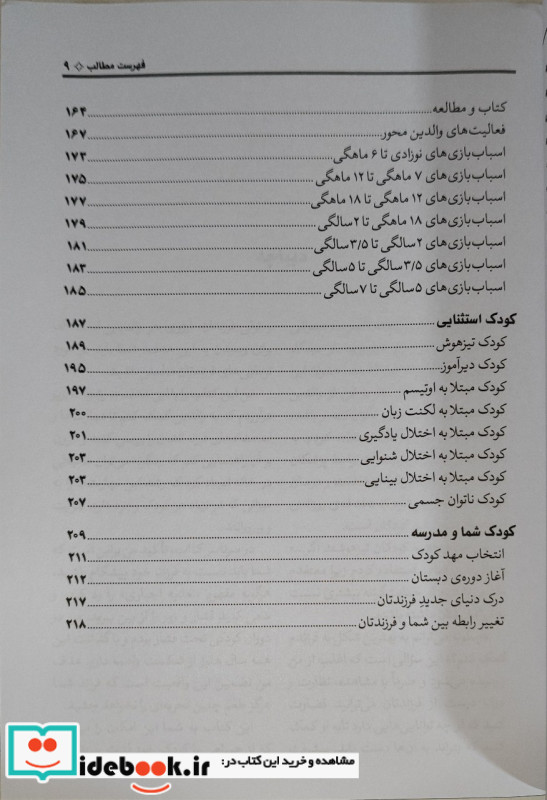 فهرست مطالب ◇ ۹
کتاب و مطالعه ۱۶۴
فعالیت‌های والدین محور ۱۶۷
اسباب‌بازی‌های نوزادی تا ۶ ماهگی ۱۷۳
اسباب‌بازی‌های ۷ ماهگی تا ۱۲ ماهگی ۱۷۵
اسباب‌بازی‌های ۱۲ ماهگی تا ۱۸ ماهگی ۱۷۷
اسباب‌بازی‌های ۱۸ ماهگی تا ۲سالگی ۱۷۹
اسباب‌بازی‌های ۲سالگی تا ۳/۵سالگی ۱۸۱
اسباب‌بازی‌های ۳/۵سالگی تا ۵سالگی ۱۸۳
اسباب‌بازی‌های ۵سالگی تا ۷سالگی ۱۸۵
کودک استثنایی ۱۸۷
کودک تیزهوش ۱۸۹
کودک دیرآموز ۱۹۵
کودک مبتلا به اوتیسم ۱۹۷
کودک مبتلا به لکنت زبان ۲۰۰
کودک مبتلا به اختلال یادگیری ۲۰۱
کودک مبتلا به اختلال شنوایی ۲۰۳
کودک مبتلا به اختلال بینایی ۲۰۳
کودک ناتوان جسمی ۲۰۷
کودک شما و مدرسه ۲۰۹
انتخاب مهد کودک ۲۱۱
آغاز دوره‌ی دبستان ۲۱۲
درک دنیای جدیدِ فرزندتان ۲۱۷
تغییر رابطه بین شما و فرزندتان ۲۱۸
مشاهده و خرید این کتاب در:
idebook.ir